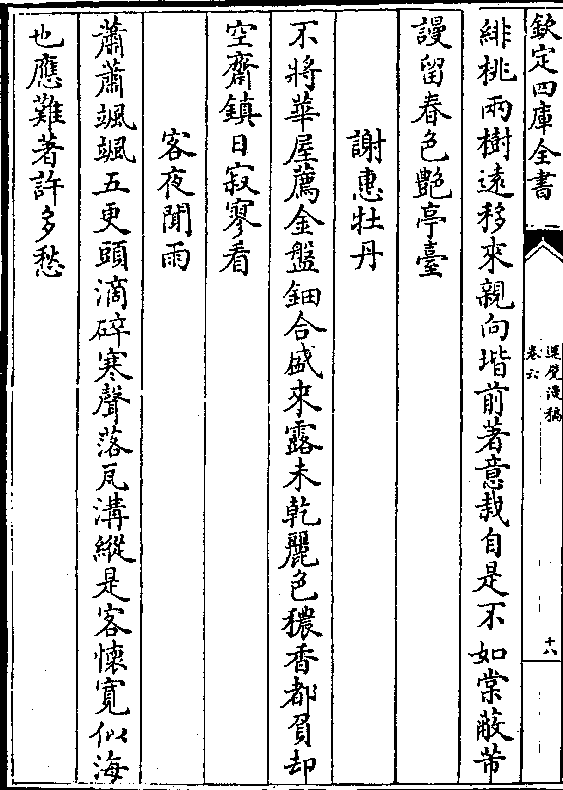 欽定四庫全書
還覺漫稿
卷六
十六
緋桃兩樹遠移來親向堦前著意栽自是不如棠蔽芾
謾留春色艷亭臺
謝惠牡丹
不將華屋薦金盤鈿合盛來露未乾麗色穠香都負却
空齋鎮日寂寥看
客夜聞雨
蕭蕭颯颯五更頭滴碎寒聲落瓦溝縱是客懷寛似海
也應難著許多愁